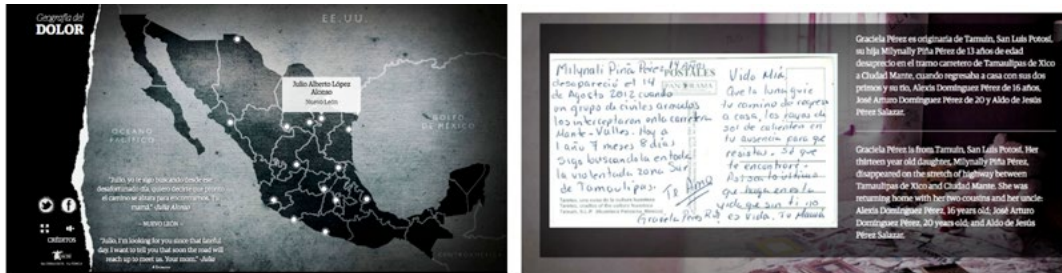 Geografía del
DOLOR
EE.UU.
Julio Alberto López
Alonso
Nuevo León
GOLFO
DE MÉXICO
OCEANO
PACÍFICO
"Julio, yo te sigo buscando desde ese
desafortunado día, quiero decirte que pronto
el camino se abrirá para encontrarnos. Tu
mamá." -Julia Alonso
- NUEVO LEÓN
"Julio, I'm looking for you since that fateful
day. I want to tell you that soon the road will
reach up to meet us. Your mom." -Julia
CRÉDITOS
Milynali Piña Pérez 14 AÑOS
desapareció el 14
de Agosto 2012 cuando
un grupo de civiles armados
los interceptaron en la carretera
Mante-Valles. Hoy a
1 año 7 meses 8 dias
Sigo buscandola en toda
la violentada zona Sur
de Tamaulipas.
Te Amo
Graciela Pérez R
POSTALES
Vida Mia
Que la luna guie
tu camino de regreso
a casa, los rayos de
sol de calienten en
tu ausencia para que
resistas. Sé que
te encontraré.
Así sea lo último
que haga en esta
vida que sin ti no
es vida. Tu Mamá
Graciela Pérez es originaria de Tamuin, San Luis Potosí,
su hija Milynally Piña Pérez de 13 años de edad
desapreció en el tramo carretero de Tamaulipas de Xico
a Ciudad Mante, cuando regresaba a casa con sus dos
primos y su tío, Alexis Domínguez Pérez de 16 años,
José Arturo Domínguez Pérez de 20 y Aldo de Jesús
Pérez Salazar.
Graciela Pérez is from Tamuin, San Luis Potosí. Her
thirteen year old daughter, Milynally Piña Pérez,
disappeared on the stretch of highway between
Tamaulipas de Xico and Ciudad Mante. She was
returning home with her two cousins and her uncle:
Alexis Domínguez Pérez, 16 years old; José Arturo
Domínguez Pérez, 20 years old; and Aldo de Jesús
Pérez Salazar.